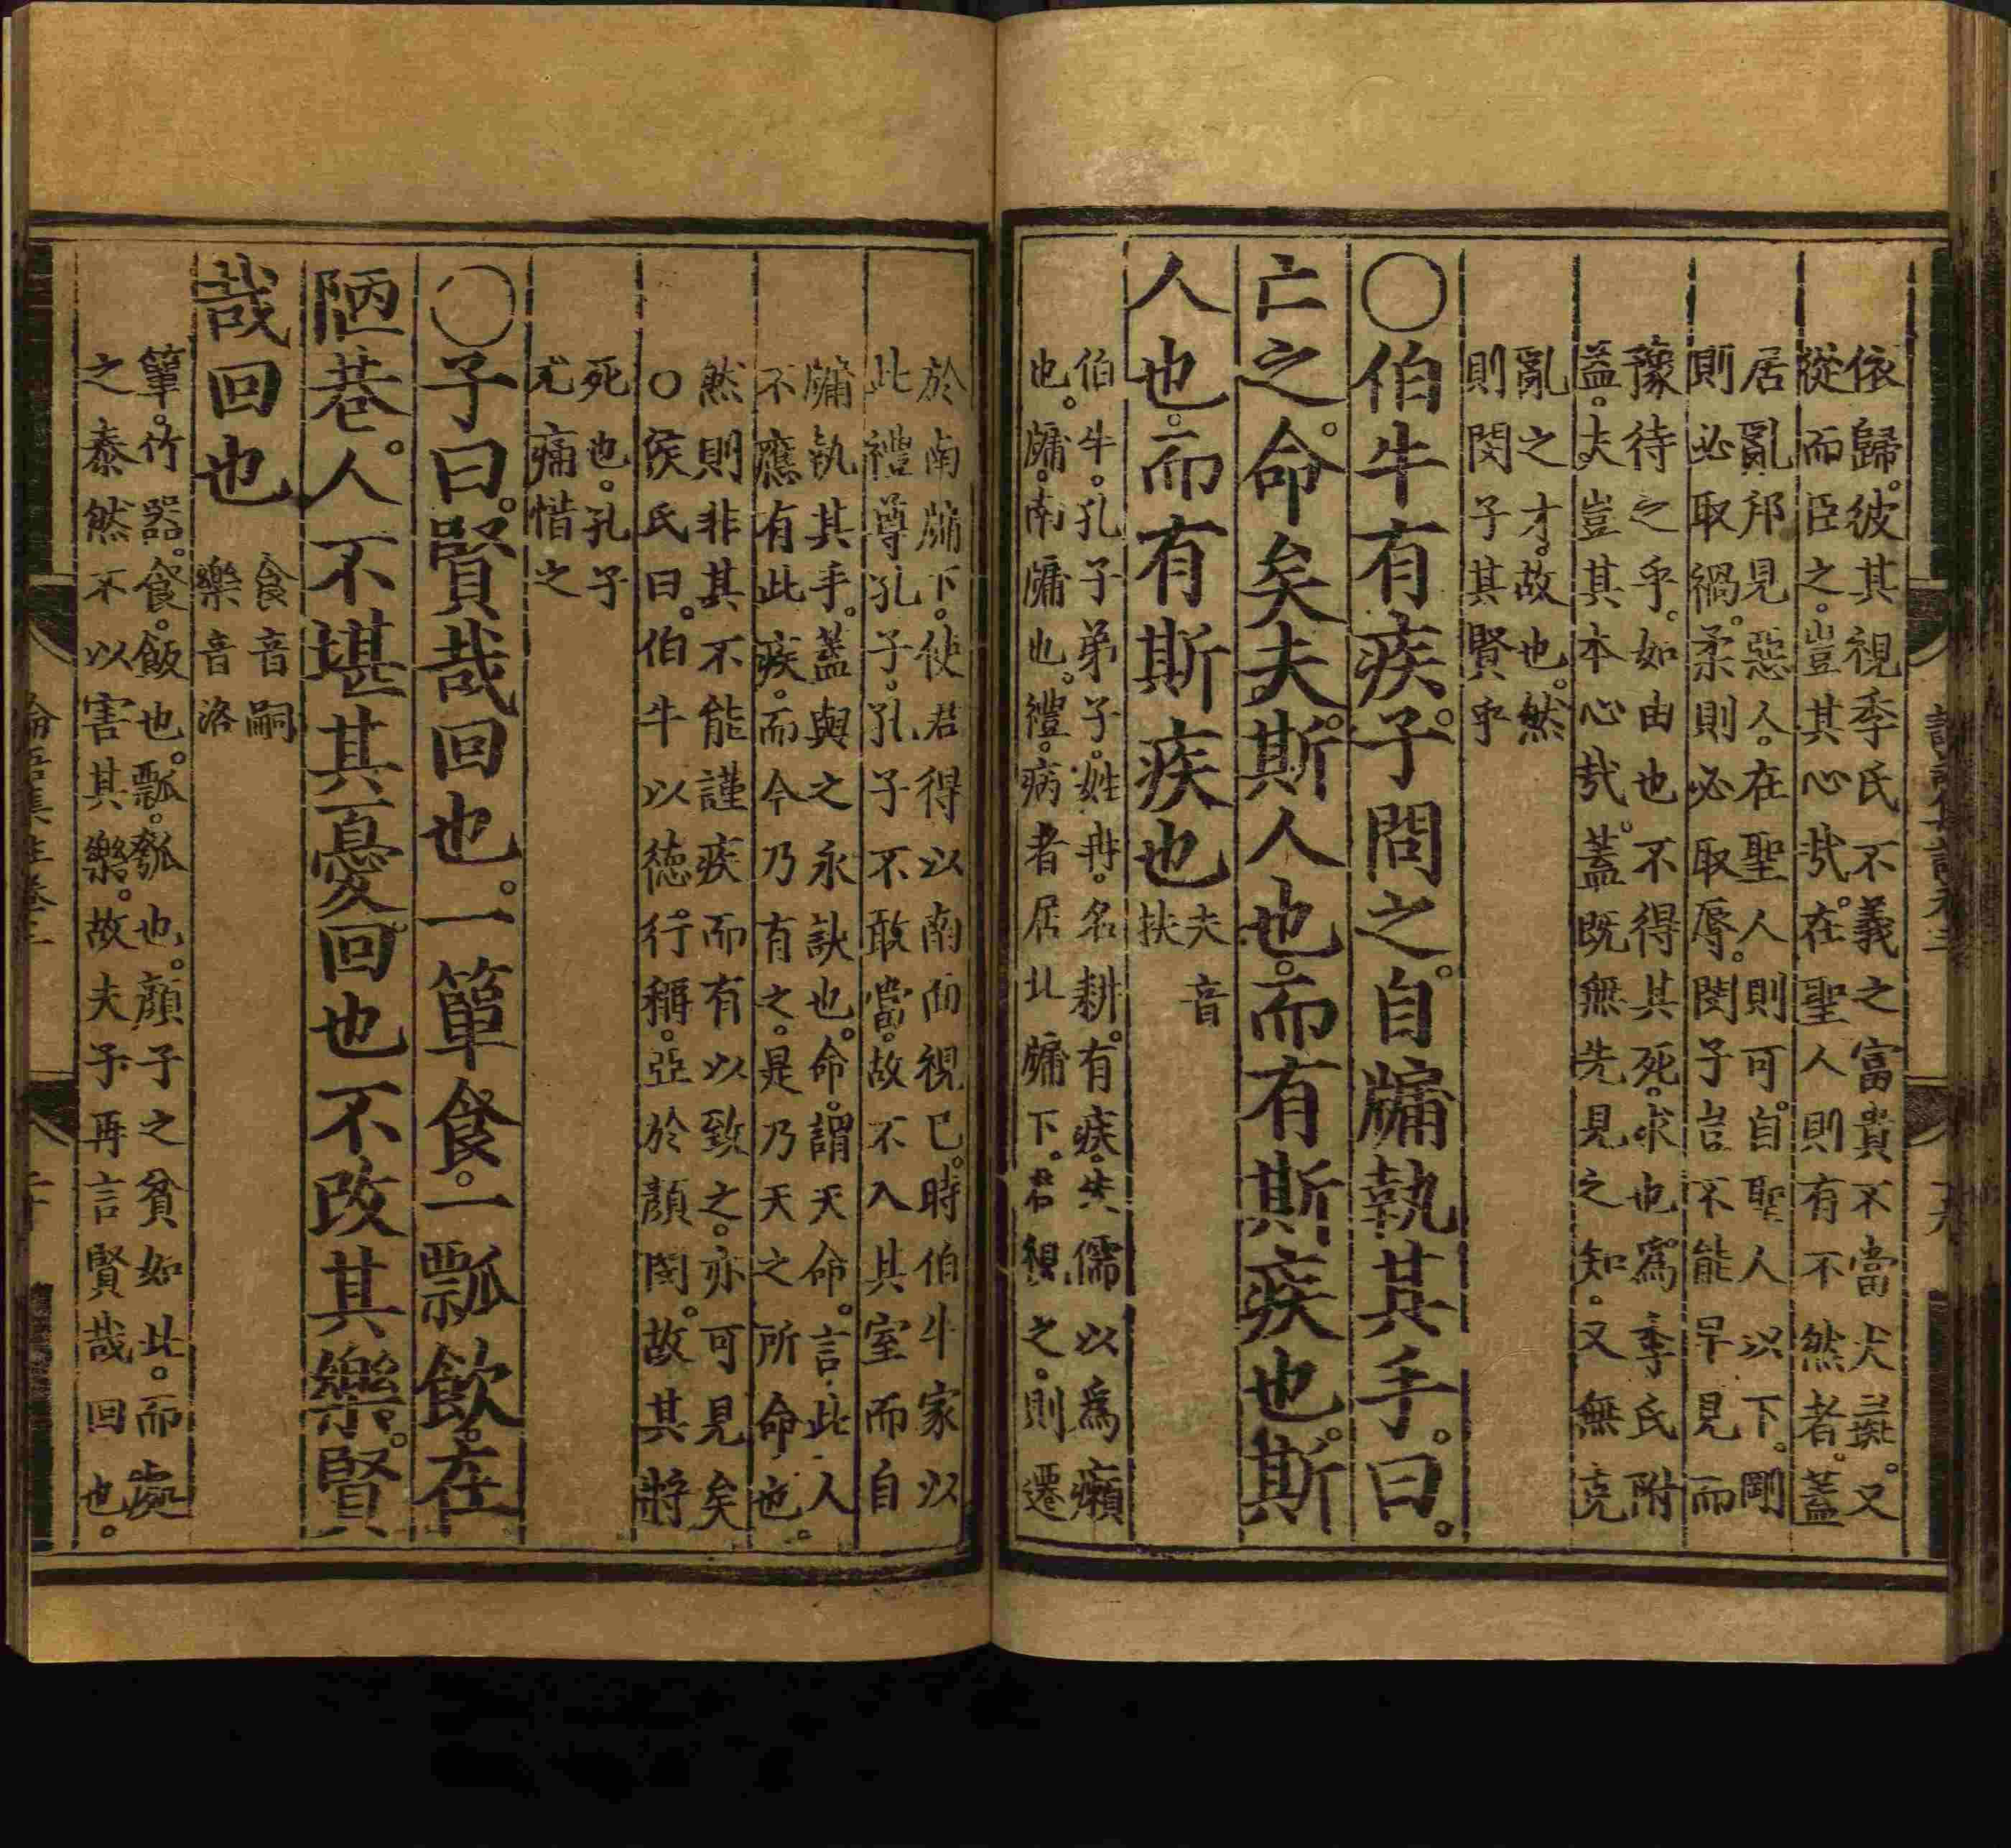 依歸。彼其視季氏不義之富貴。不啻犬彘。又
從而臣之。豈其心哉。在聖人則有不然者。蓋
居亂邦見惡人。在聖人則可。自聖人以下。剛
則必取禍。柔則必取辱。閔子豈不能早見而
豫待之乎。如由也不得其死。求也爲季氏附
益。夫豈其本心哉。蓋既無先見之知。又無克
亂之才。故也。然
則閔子其賢乎
○伯牛有疾。子問之。自牖執其手。曰。
亡之。命矣夫。斯人也。而有斯疾也。斯
人也。而有斯疾也
夫音
扶
伯牛。孔子弟子。姓冉。名耕。有疾。先儒以爲癩
也。牖。南牖也。禮。病者居北牖下。君視之。則遷
於南牖下。使君得以南面視已。時伯牛家以
此禮尊孔子。孔子不敢當。故不入其室而自
牖執其手。蓋與之永訣也。命。謂天命。言此人
不應有此疾。而今乃有之。是乃天之所命也。
然則非其不能謹疾而有以致之。亦可見矣
○侯氏曰。伯牛以德行稱。亞於顔閔。故其將
死也。孔子
尤痛惜之
○子曰。賢哉回也。一簞食。一瓢飲。在
陋巷。人不堪其憂。回也不改其樂。賢
哉回也
食音嗣
樂音洛
簞。竹器。食。飯也。瓢。瓠也。顔子之貧如此。而處
之泰然不以害其樂。故夫子再言賢哉回也。